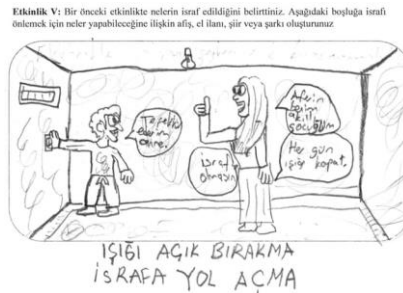 Etkinlik V: Bir önceki etkinlikte nelerin israf edildiğini belirttiniz. Aşağıdaki boşluğa israfı
önlemek için neler yapabileceğine ilişkin afiş, el ilanı, şiir veya şarkı oluşturunuz
israf
olmasın
Aferin
benim
akıllı
çocuğum
Her gün
ışığı kapat.
IŞIĞI AÇIK BIRAKMA
İSRAFA YOL AÇMA